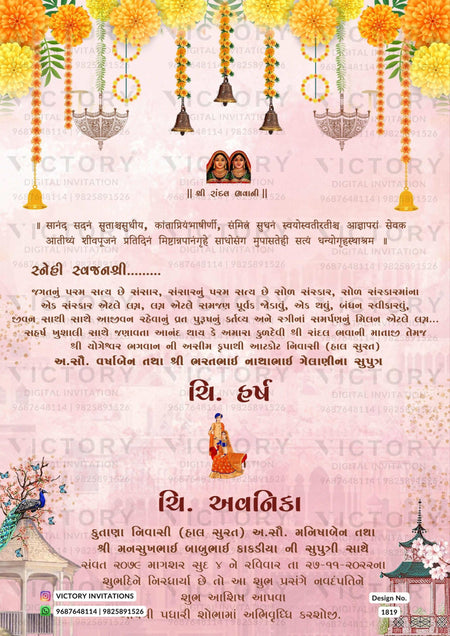 || શ્રી રાંદલ ભવાની ||
|| સાનંદ સદનં સુતાશ્ચસુધીય, કાંતાપ્રિયંભાષીર્ણી, સંમિત્રં સુધનં સ્વયોસ્વતીરતીશ્ચ આજ્ઞાપરાં સેવક
આતીથ્યં શીવપૂજનં પ્રતિદિનં મિષ્ટાન્નપાનંગૃહે સાધોસંગ મુપાસતેહી સત્યં ધન્યોગૃહસ્થાશ્રમ ||
સ્નેહી સ્વજનશ્રી.........
જગતનું પરમ સત્ય છે સંસાર, સંસારનું પરમ સત્ય છે સોળ સંસ્કાર, સોળ સંસ્કારમાંના
એક સંસ્કાર એટલે લગ્ન, લગ્ન એટલે સમજણ પૂર્વક જોડાવું, એક થવું, બંધન સ્વીકારવું,
જીવન સાથી સાથે આજીવન રહેવાનું વ્રત પુરૂષનું કર્તવ્ય અને સ્ત્રીનાં સમર્પણનું મિલન એટલે લગ્ન...
સહર્ષ ખુશાલી સાથે જણાવતા આનંદ થાય કે અમારા કુળદેવી શ્રી રાંદલ ભવાની માતાજી તેમજ
શ્રી યોગેશ્વર ભગવાન ની અસીમ કૃપાથી આટકોટ નિવાસી (હાલ સુરત)
અ.સૌ. વર્ષાબેન તથા શ્રી ભરતભાઈ નાથાભાઈ ગેલાણીના સુપુત્ર
ચિ. હર્ષ
ચિ. અવનિકા
કુતાણા નિવાસી (હાલ સુરત) અ.સૌ. મનિષાબેન તથા
શ્રી મનસુખભાઈ બાબુભાઈ કાકડીયા ની સુપુત્રી સાથે
સંવત ૨૦૭૯ માગશર સુદ ૪ ને રવિવાર તા ૨૭-૧૧-૨૦૨૨ના
શુભદિને નિરધાર્યા છે તો આ શુભ પ્રસંગે નવદંપતિને
શુભ આશિષ આપવા
પધારી શોભામાં અભિવૃધ્ધિ કરશોજી.
VICTORY INVITATIONS
9687648114 | 9825891526
Design No.
1819
VICTORY
DIGITAL INVITATION
9687648114 | 9825891526